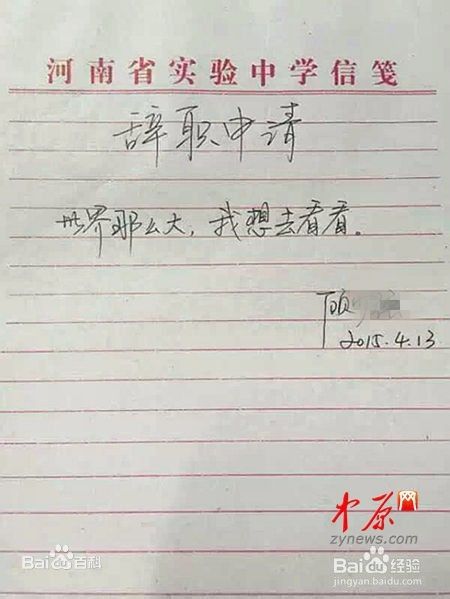 河南省实验中学信笺
辞职申请
世界那么大，我想去看看。
顾
2015.4.13
中原网
zynews.com
Bai du 百科
Bai du 经验
jingyan.baidu.com